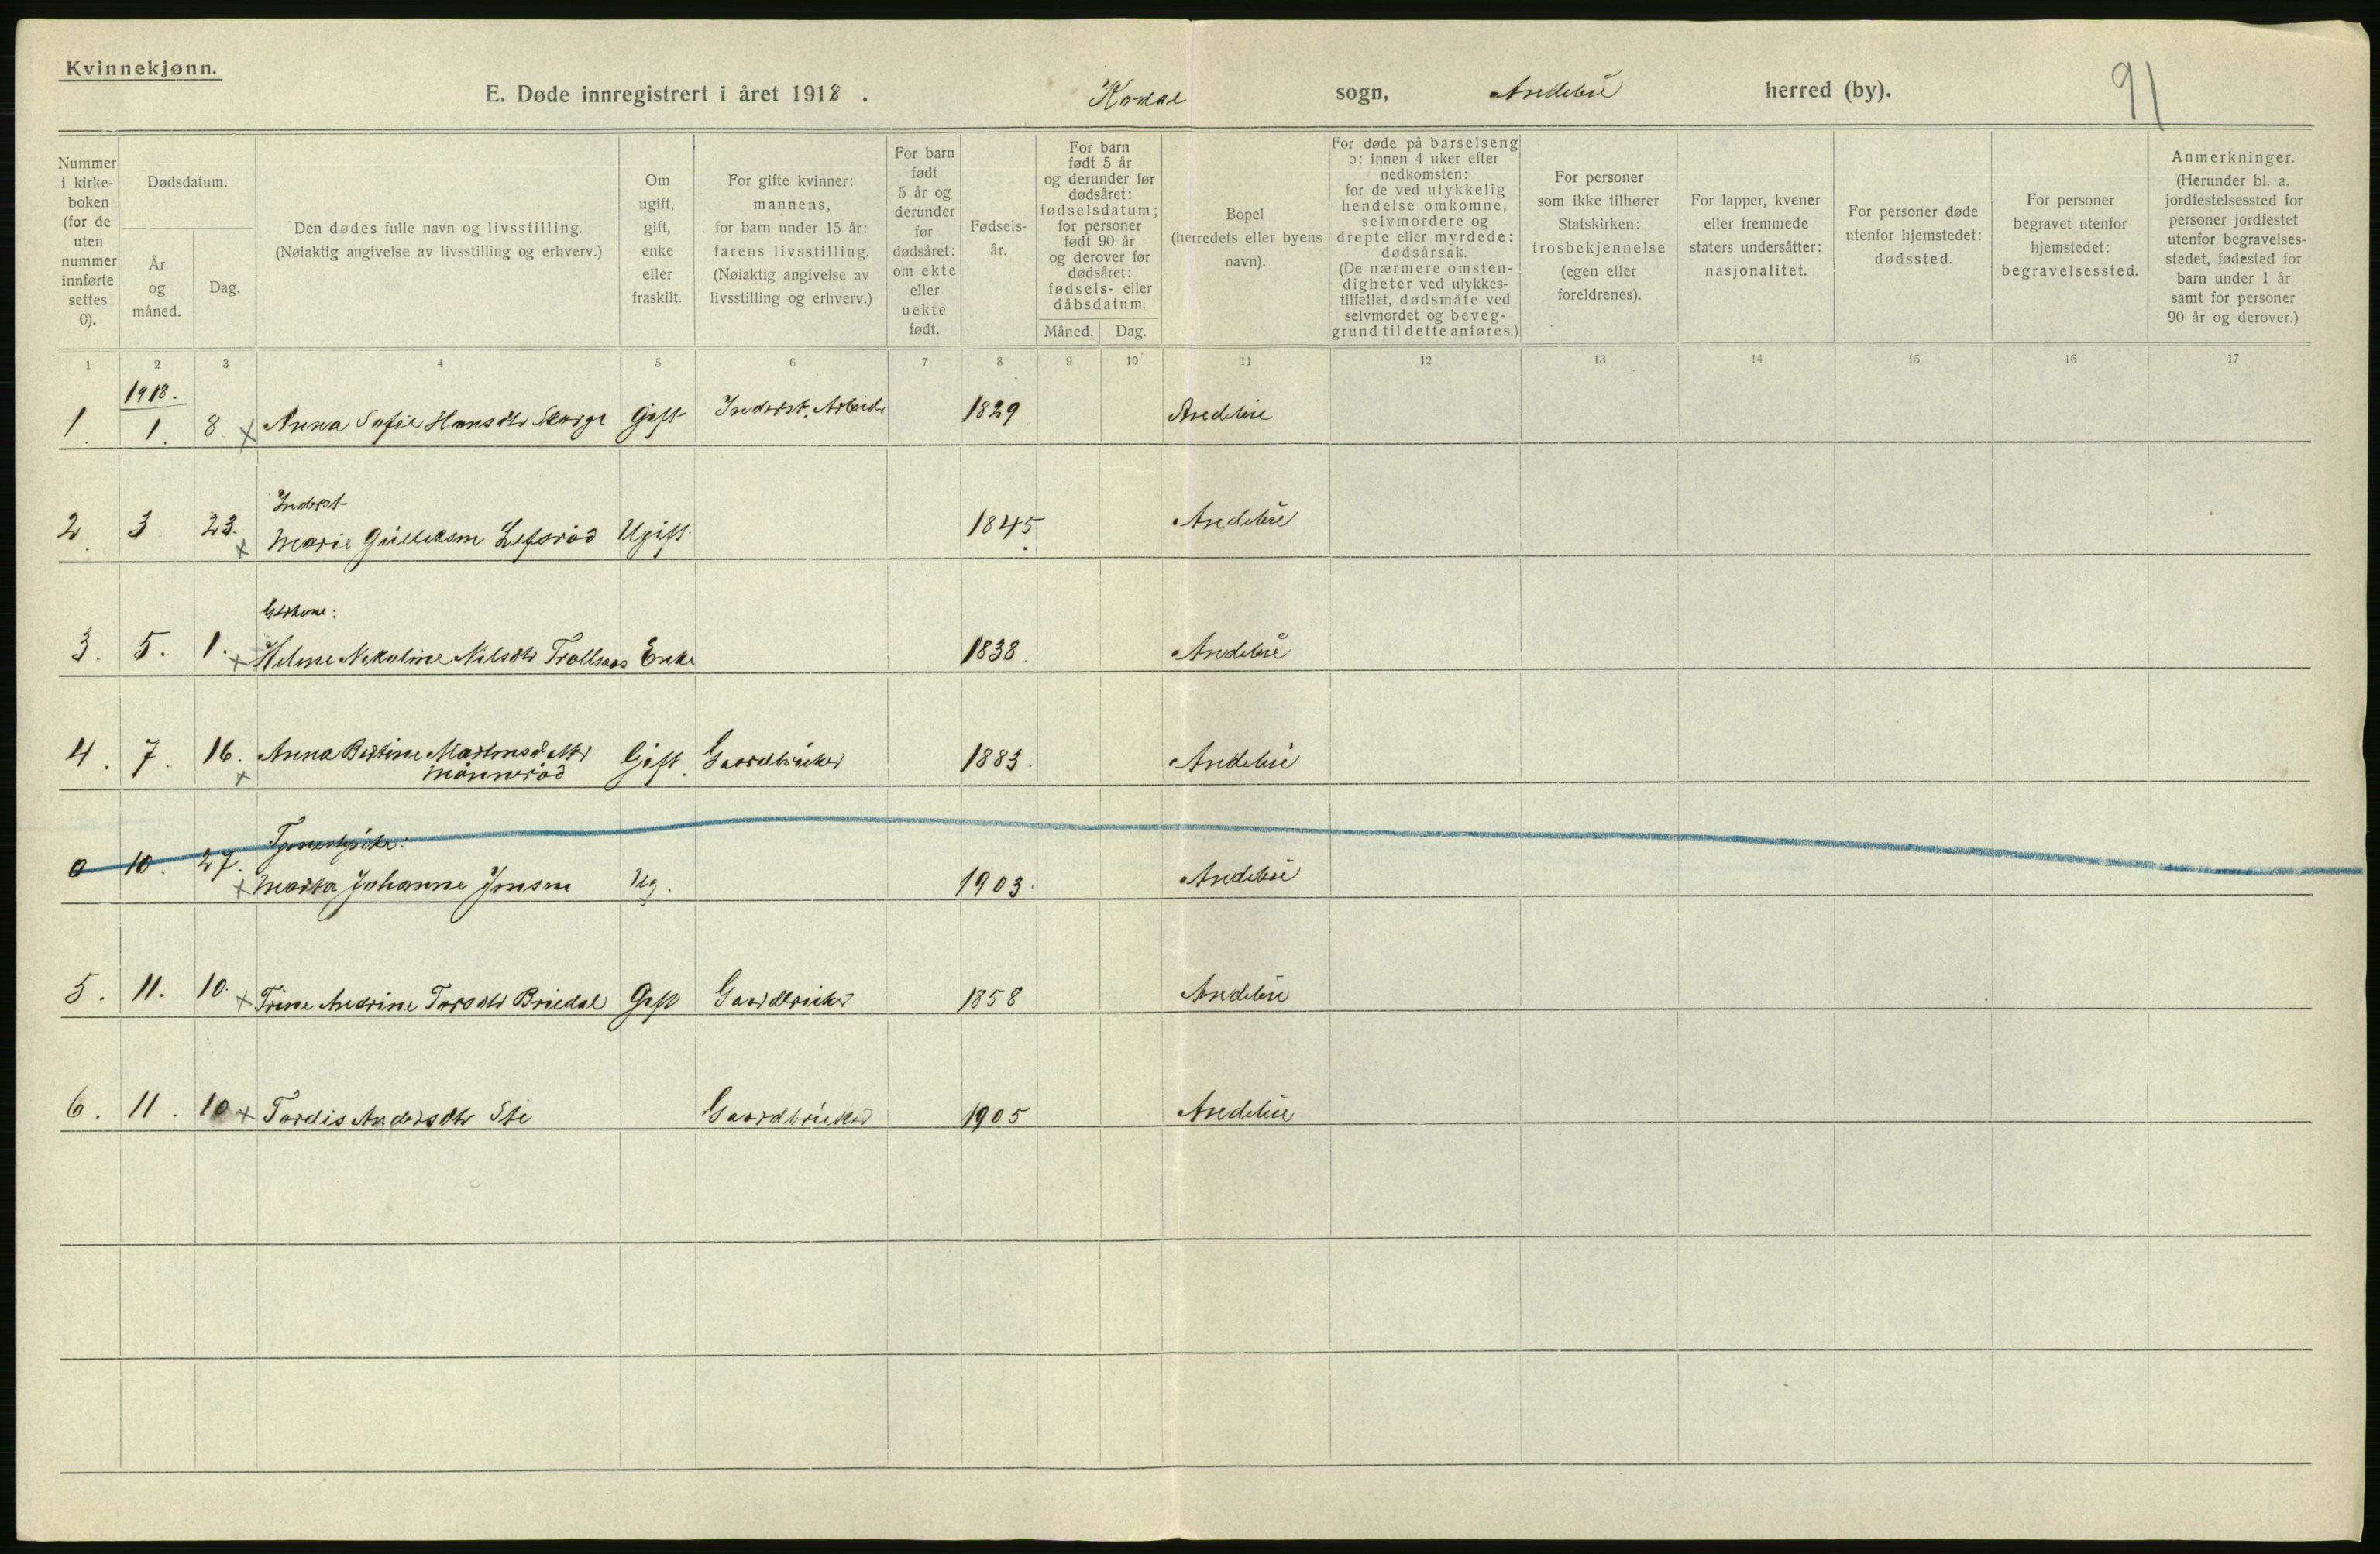 Kvinnekjønn.
E. Døde innregistrert i året 1918. Kodal sogn, Andebu herred (by). 91
Nummer i kirke- boken (for de uten nummer innførte settes 0).
Dødsdatum.
År og måned.
Dag.
Den dødes fulle navn og livsstilling.
(Nøiaktig angivelse av livsstilling og erhverv.)
Om ugift, gift, enke eller fraskilt.
For gifte kvinner: mannens, for barn under 15 år: farens livsstilling. (Nøiaktig angivelse av livsstilling og erhverv.)
For barn født 5 år og derunder før dødsåret: om ekte eller uekte født.
Fødsels- år.
For barn født 5 år og derunder før dødsåret: fødselsdatum; for personer født 90 år og derover før dødsåret: fødsels- eller dåbsdatum.
Måned. Dag.
Bopel (herredets eller byens navn).
For døde på barselseng ɔ: innen 4 uker efter nedkomsten: for de ved ulykkelig hendelse omkomne, selvmordere og drepte eller myrdede: dødsårsak. (De nærmere omsten- digheter ved ulykkes- tilfellet, dødsmåte ved selvmordet og beveg- grund til dette anføres.)
For personer som ikke tilhører Statskirken: trosbekjennelse (egen eller foreldrenes).
For lapper, kvener eller fremmede staters undersåtter: nasjonalitet.
For personer døde utenfor hjemstedet: dødssted.
For personer begravet utenfor hjemstedet: begravelsessted.
Anmerkninger. (Herunder bl. a. jordfestelsessted for personer jordfestet utenfor begravelses- stedet, fødested for barn under 1 år samt for personer 90 år og derover.)
1 2 3 4 5 6 7 8 9 10 11 12 13 14 15 16 17
1918.
1. 1. 8 x Anna Sofie Hansdtr Skorge Gift Inderst. Arbeider 1829 Andebu
Inderst
2. 3 23. x Marie Gulliksen Lefsrød Ugift. 1845. Andebu
3. 5. 1. x Helene Nikoline Nilsdtr Trollsaas Enke 1838. Andebu
4. 7. 16. x Anna Bertine Martinsdatter Gift. Gaardbruker 1883. Andebu
Mønnerød
Tjenestepike:
0 10. 27. x Marta Johanne Jensen Ug. 1903. Andebu
5. 11. 10. x Trine Andrine Torsdtr Bruedal Gift Gaardbruker 1858 Andebu
6. 11. 10 x Tordis Andersdtr Sti Gaardbruker 1905 Andebu